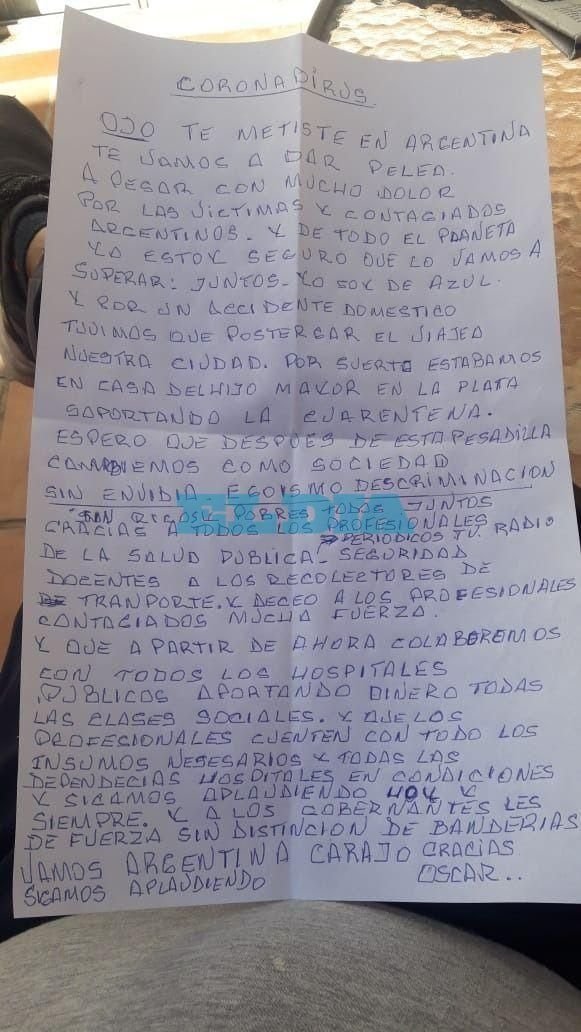 CORONADIRUS
OJO TE METISTE EN ARGENTINA
TE VAMOS A DAR PELEA.
A PESAR CON MUCHO DOLOR
POR LAS VICTIMAS Y CONTAGIADOS
ARGENTINOS. Y DE TODO EL PLANETA
YO ESTOY SEGURO QUE LO VAMOS A
SUPERAR: JUNTOS- YO SOY DE AZUL.
Y POR UN ACCIDENTE DOMESTICO
TUVIMOS QUE POSTERGAR EL VIAJE A
NUESTRA CIUDAD. POR SUERTE ESTABAMOS
EN CASA DEL HIJO MAYOR EN LA PLATA
SOPORTANDO LA CUARENTENA.
ESPERO QUE DESPUES DE ESTA PESADILLA
CAMBIEMOS COMO SOCIEDAD
SIN ENVIDIA EGOISMO DESCRIMINACION
SIN RICOS Y POBRES TODOS JUNTOS
EL DIA
GRACIAS A TODOS LOS PROFESIONALES
PERIODICOS TV. RADIO
DE LA SALUD PUBLICA- SEGURIDAD
DOCENTES A LOS RECOLECTORES DE
TRANPORTE. Y DECEO A LOS PROFESIONALES
CONTAGIADOS MUCHA FUERZA.
Y QUE A PARTIR DE AHORA COLABOREMOS
CON TODOS LOS HOSPITALES
PUBLICOS APORTANDO DINERO TODAS
LAS CLASES SOCIALES. Y QUE LOS
PROFESIONALES CUENTEN CON TODO LOS
INSUMOS NESESARIOS Y TODAS LAS
DEPENDECIAS HOSPITALES EN CONDICIONES
Y SIGAMOS APLAUDIENDO HOY Y
SIEMPRE. Y A LOS GOBERNANTES LES
DE FUERZA SIN DISTINCION DE BANDERIAS
VAMOS ARGENTINA CARAJO GRACIAS
SIGAMOS APLAUDIENDO OSCAR..